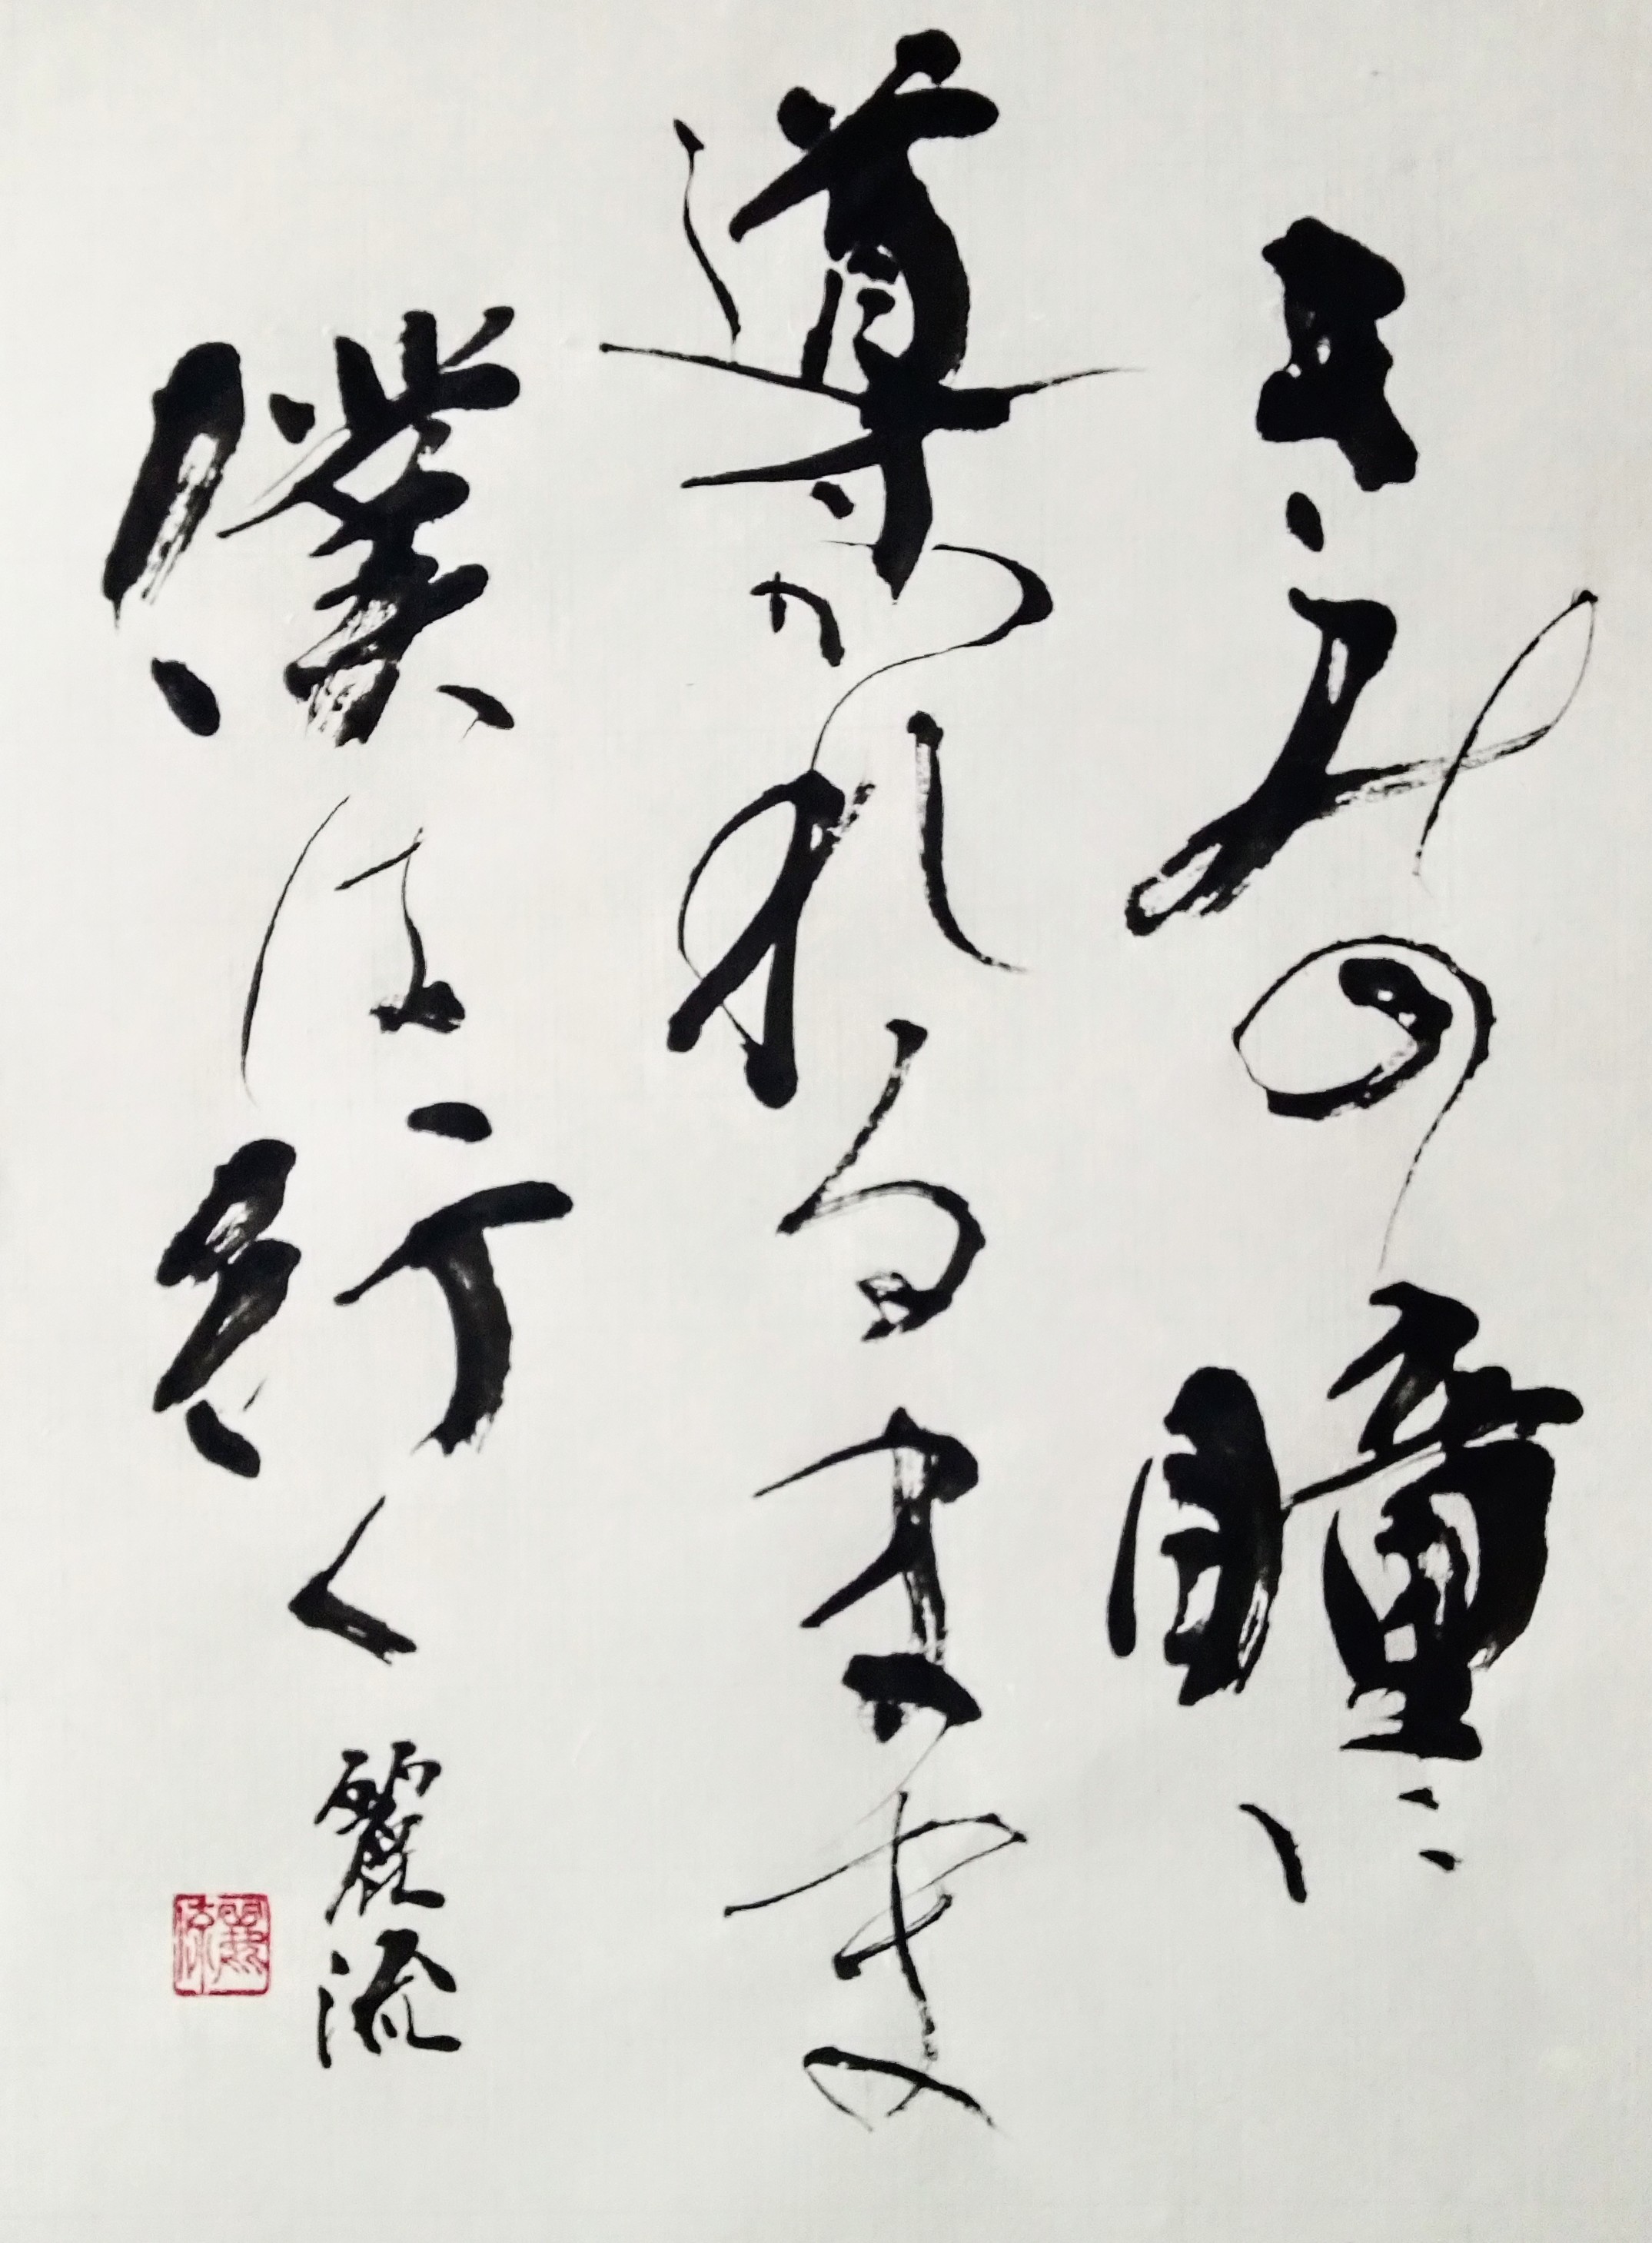 きみの瞳に
導かれるまま
僕は行く
麗流
麗流